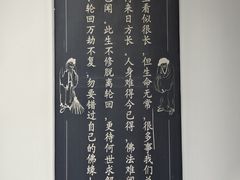 看似很长，但生命无常，很多事我们总
来日方长。人身难得今已得，佛法难闻
已闻，此生不修脱离轮回，更待何世求解
轮回万劫不复，勿要错过自己的佛缘